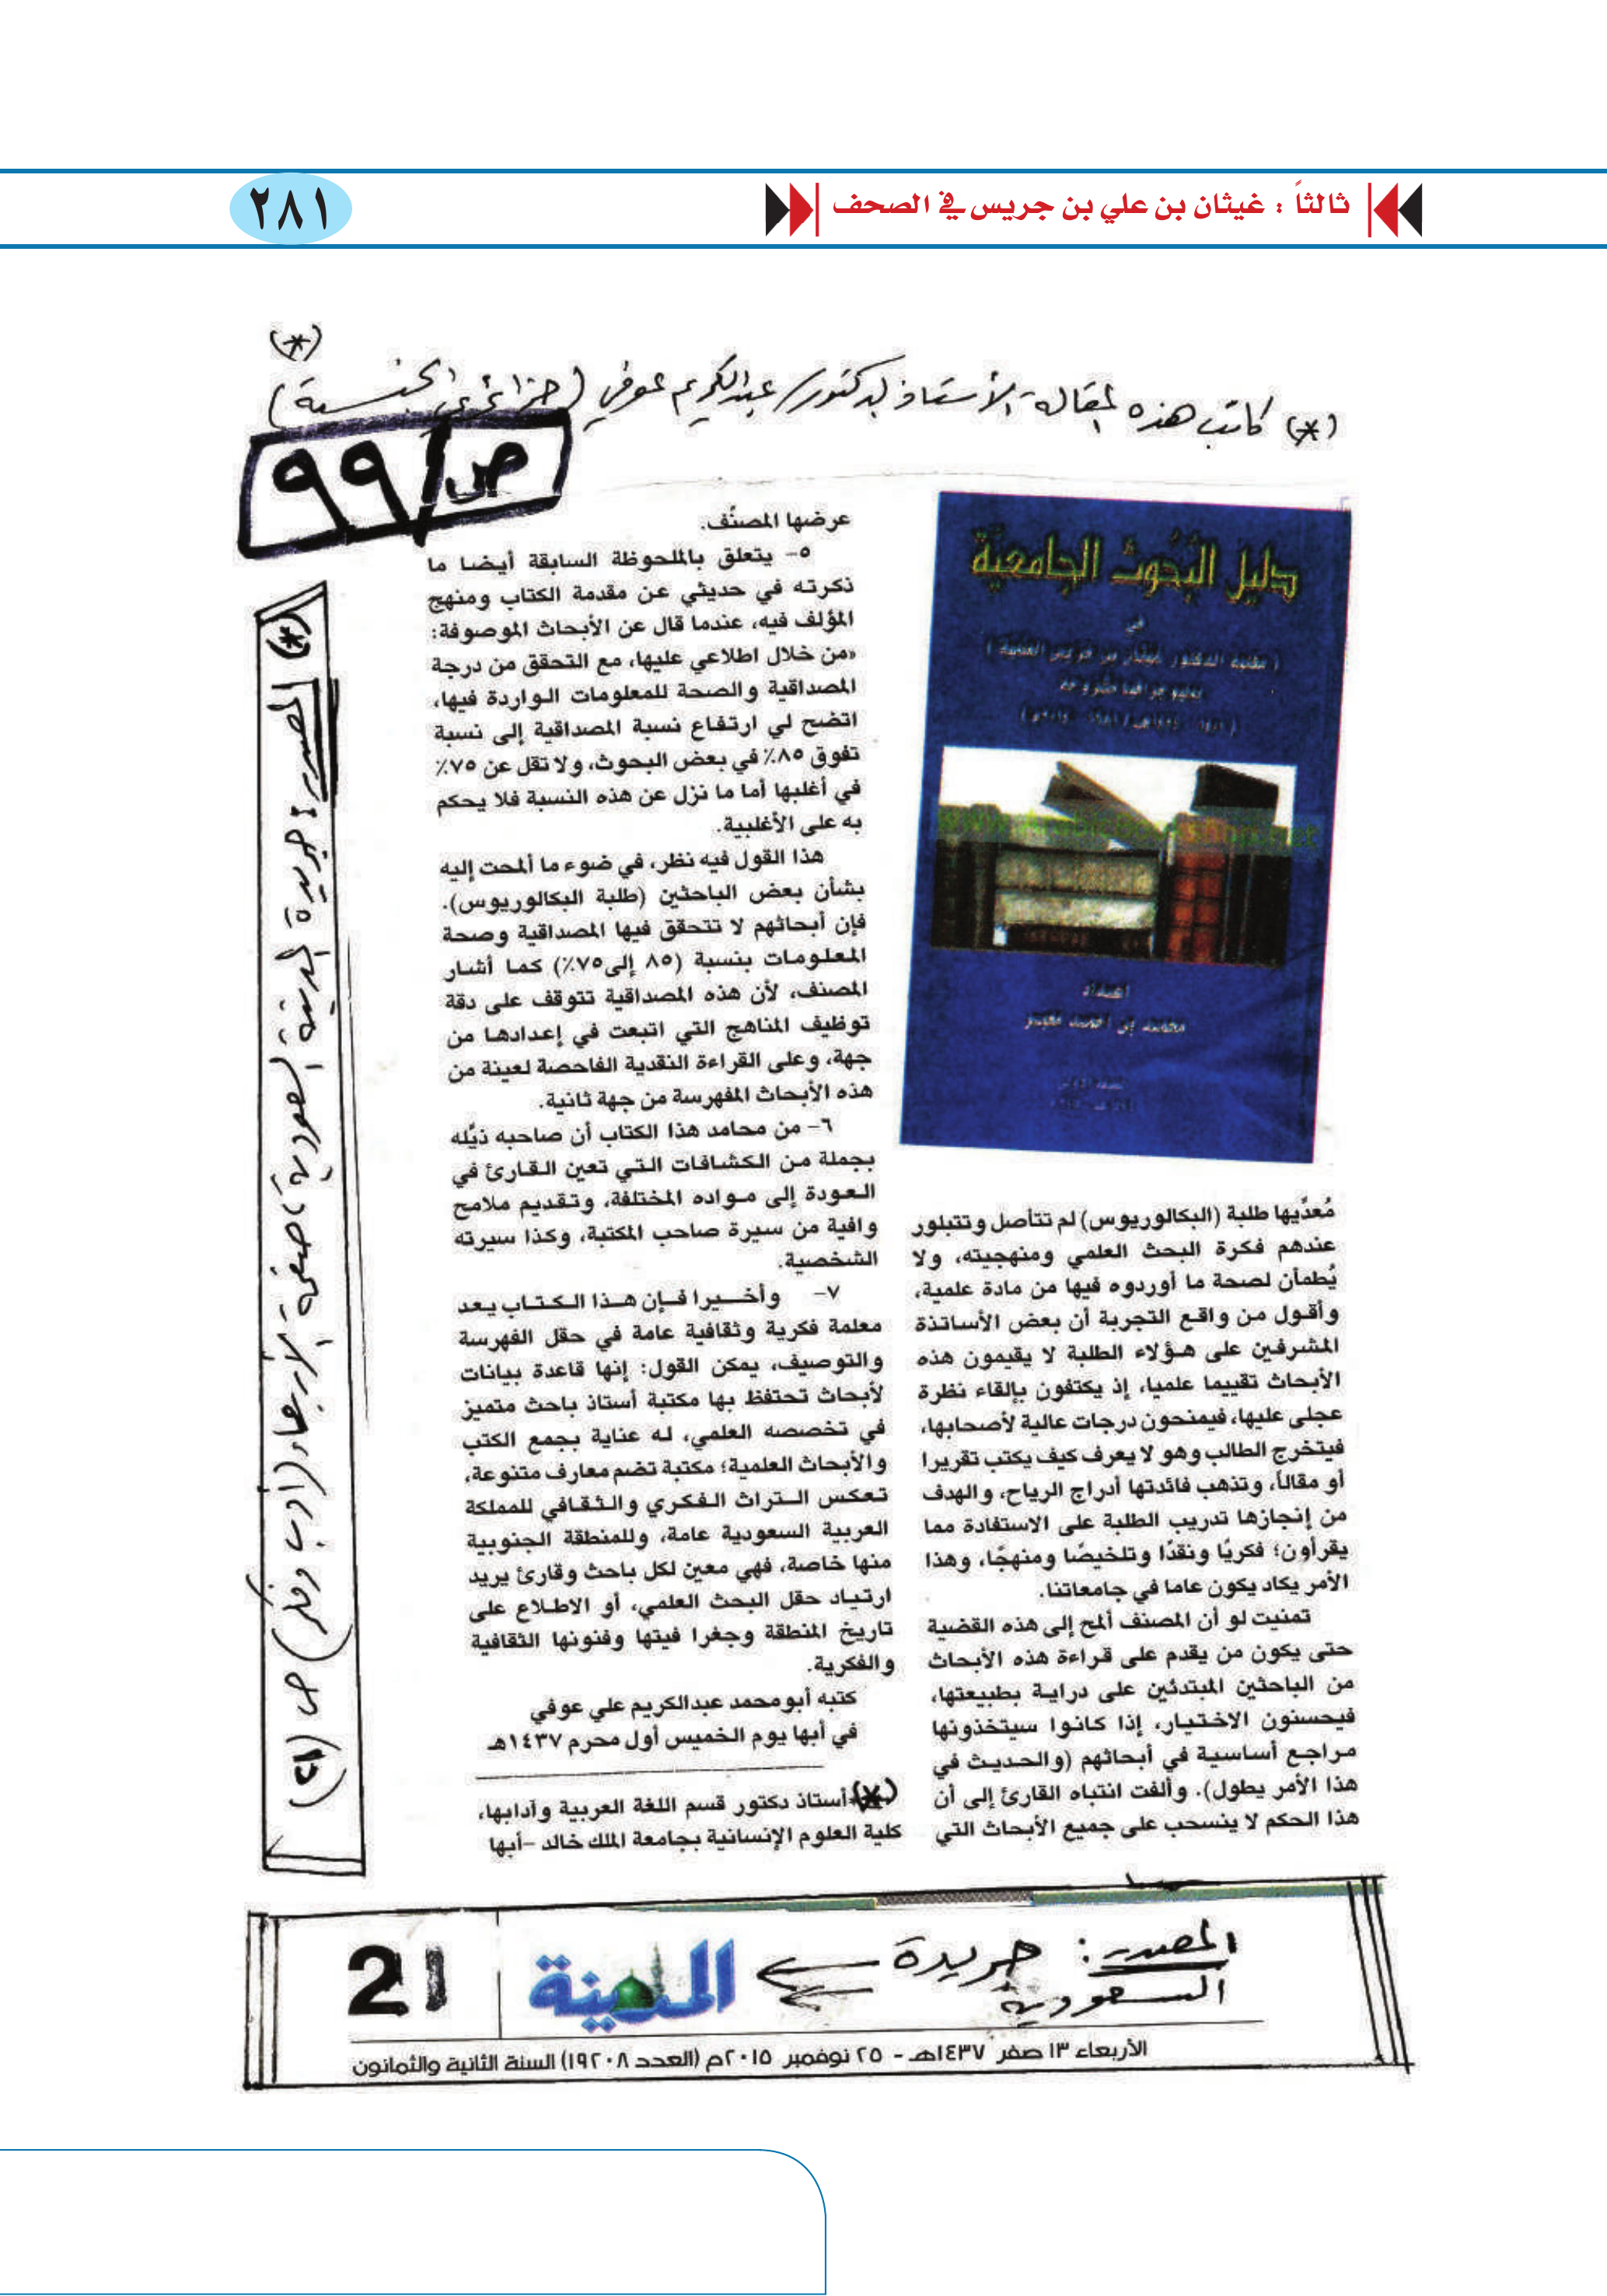 ثالثاً : غيثان بن علي بن جريس في الصحف
٢٨١
(*)
(*) كاتب هذه المقالة الأستاذ الدكتور/ عبدالكريم عوفي (جزائري الجنسية)
ص/٩٩
دليل البُحوث الجامعيّة
في
إعداد
محمد بن أحمد معبر
مُعدِّيها طلبة (البكالوريوس) لم تتأصل وتتبلور
عندهم فكرة البحث العلمي ومنهجيته، ولا
يُطمأن لصحة ما أوردوه فيها من مادة علمية،
وأقول من واقع التجربة أن بعض الأساتذة
المشرفين على هؤلاء الطلبة لا يقيمون هذه
الأبحاث تقييما علميا، إذ يكتفون بإلقاء نظرة
عجلى عليها، فيمنحون درجات عالية لأصحابها،
فيتخرج الطالب وهو لا يعرف كيف يكتب تقريرا
أو مقالاً، وتذهب فائدتها أدراج الرياح، والهدف
من إنجازها تدريب الطلبة على الاستفادة مما
يقرأون؛ فكريًا ونقدًا وتلخيصًا ومنهجًا، وهذا
الأمر يكاد يكون عاما في جامعاتنا.
تمنيت لو أن المصنف ألمح إلى هذه القضية
حتى يكون من يقدم على قراءة هذه الأبحاث
من الباحثين المبتدئين على دراية بطبيعتها،
فيحسنون الاختيار، إذا كانوا سيتخذونها
مراجع أساسية في أبحاثهم (والحديث في
هذا الأمر يطول). وألفت انتباه القارئ إلى أن
هذا الحكم لا ينسحب على جميع الأبحاث التي
عرضها المصنِّف.
٥- يتعلق بالملحوظة السابقة أيضا ما
ذكرته في حديثي عن مقدمة الكتاب ومنهج
المؤلف فيه، عندما قال عن الأبحاث الموصوفة:
«من خلال اطلاعي عليها، مع التحقق من درجة
المصداقية والصحة للمعلومات الواردة فيها،
اتضح لي ارتفاع نسبة المصداقية إلى نسبة
تفوق ٨٥٪ في بعض البحوث، ولا تقل عن ٧٥٪
في أغلبها أما ما نزل عن هذه النسبة فلا يحكم
به على الأغلبية.
هذا القول فيه نظر، في ضوء ما ألمحت إليه
بشأن بعض الباحثين (طلبة البكالوريوس).
فإن أبحاثهم لا تتحقق فيها المصداقية وصحة
المعلومات بنسبة (٨٥ إلى ٧٥٪) كما أشار
المصنف، لأن هذه المصداقية تتوقف على دقة
توظيف المناهج التي اتبعت في إعدادها من
جهة، وعلى القراءة النقدية الفاحصة لعينة من
هذه الأبحاث المفهرسة من جهة ثانية.
٦- من محامد هذا الكتاب أن صاحبه ذيَّله
بجملة من الكشافات التي تعين القارئ في
العودة إلى مواده المختلفة، وتقديم ملامح
وافية من سيرة صاحب المكتبة، وكذا سيرته
الشخصية.
٧- وأخيرا فإن هذا الكتاب يعد
معلمة فكرية وثقافية عامة في حقل الفهرسة
والتوصيف، يمكن القول: إنها قاعدة بيانات
لأبحاث تحتفظ بها مكتبة أستاذ باحث متميز
في تخصصه العلمي، له عناية بجمع الكتب
والأبحاث العلمية؛ مكتبة تضم معارف متنوعة،
تعكس التراث الفكري والثقافي للمملكة
العربية السعودية عامة، وللمنطقة الجنوبية
منها خاصة، فهي معين لكل باحث وقارئ يريد
ارتياد حقل البحث العلمي، أو الاطلاع على
تاريخ المنطقة وجغرا فيتها وفنونها الثقافية
والفكرية.
كتبه أبو محمد عبدالكريم علي عوفي
في أبها يوم الخميس أول محرم ١٤٣٧هـ
(*) أستاذ دكتور قسم اللغة العربية وآدابها،
كلية العلوم الإنسانية بجامعة الملك خالد -أبها
(*) المصدر: جريدة المدينة السعودية، صفحة الأربعاء (أدب وفكر) ص (٢١)
المصدر: جريدة
السعودية
المدينة
21
الأربعاء ١٣ صفر ١٤٣٧هـ - ٢٥ نوفمبر ٢٠١٥م (العدد ١٩٢٠٨) السنة الثانية والثمانون